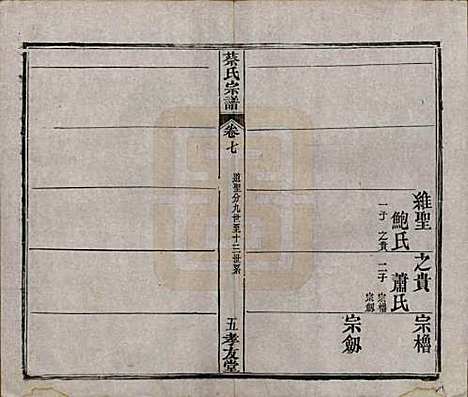 維聖
鮑氏
一子 之貴
之貴
蕭氏
二子 宗櫓 宗劔
宗櫓
宗劔
蔡氏宗譜
卷七
道聖分九世至十二世系
五
孝友堂